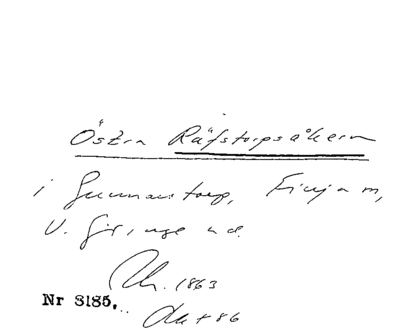 Östra Räfstorpsåkern
i Gunnarstorp, Finja m,
V. Göinge hd.
1863
Nr 3185.